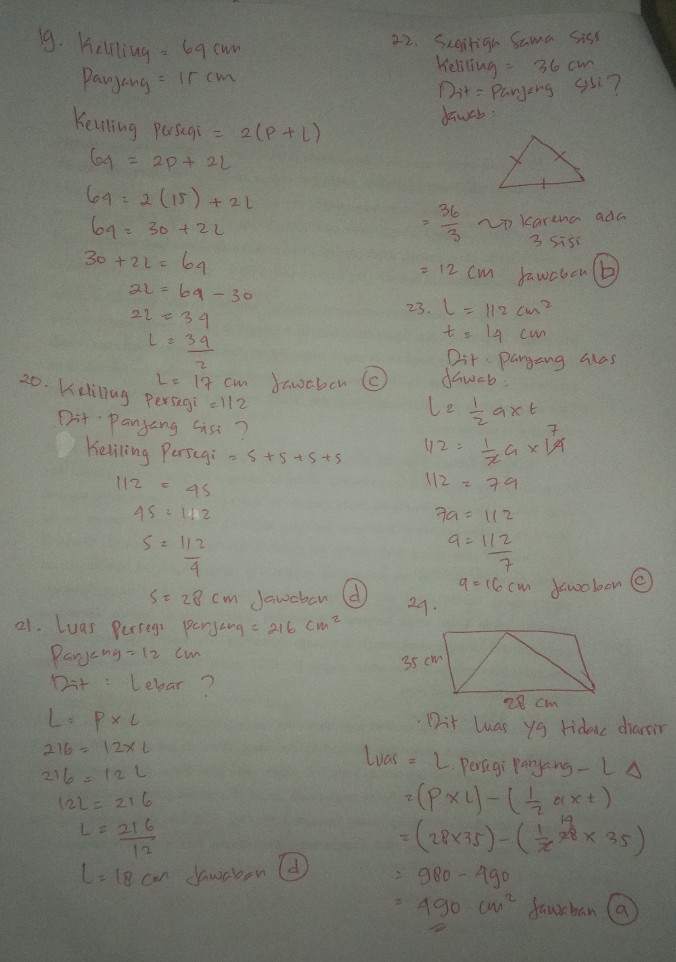 19. Keliling = 64 cm
Panjang = 15 cm
Keliling Persegi = 2(P + L)
64 = 2P + 2L
64 = 2(15) + 2L
64 = 30 + 2L
30 + 2L = 64
2L = 64 - 30
2L = 34
L = 34
2
L = 17 cm Jawaban c
20. Keliling Persegi = 112
Dit. Panjang sisi ?
Keliling Persegi = s + s + s + s
112 = 4s
4s = 112
s = 112
4
s = 28 cm Jawaban d
21. Luas Persegi panjang = 216 cm²
Panjang = 12 cm
Dit : Lebar ?
L = P x L
216 = 12 x L
216 = 12 L
12L = 216
L = 216
12
L = 18 cm Jawaban d
22. Segitiga Sama Sisi
Keliling = 36 cm
Dit = Panjang sisi ?
Jawab :
= 36 Karena ada
3 3 sisi
= 12 cm Jawaban b
23. L = 112 cm²
t = 14 cm
Dit. Panjang alas
Jawab :
L = 1/2 a x t
7
112 = 1/2 a x 14
112 = 7a
7a = 112
a = 112
7
a = 16 cm Jawaban c
24.
35 cm
28 cm
. Dit Luas yg tidak diarsir
Luas = L. Persegi Panjang - L Δ
= (P x L) - (1/2 a x t)
14
= (28 x 35) - (1/2 28 x 35)
= 980 - 490
= 490 cm² Jawaban a